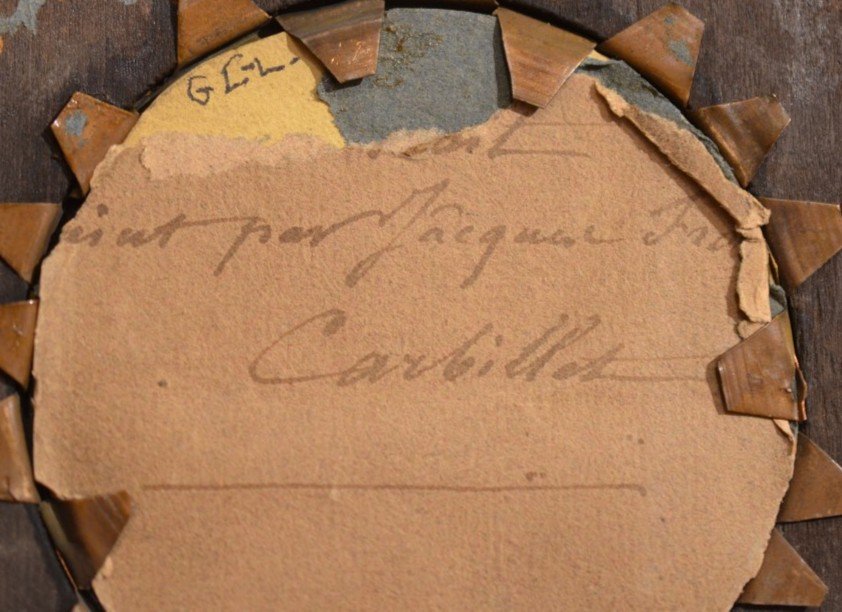 G L-L.
eint par Jacques Fr
Carbillet